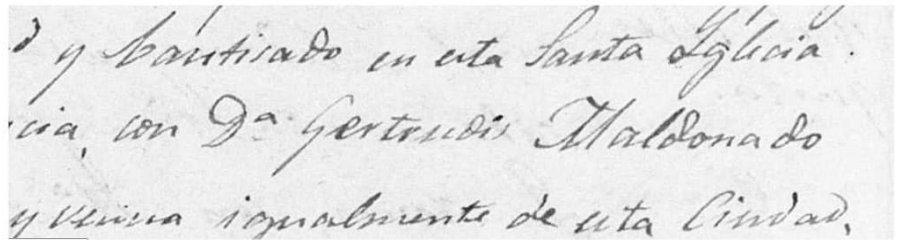 y bautisado en esta Santa Iglecia.
cia, con Da. Gertrudis Maldonado
y vecina igualmente de esta Ciudad,